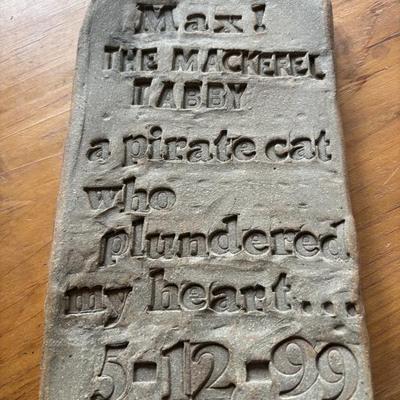 Max!
THE MACKEREL
TABBY
a pirate cat
who
plundered
my heart...
5-12-99